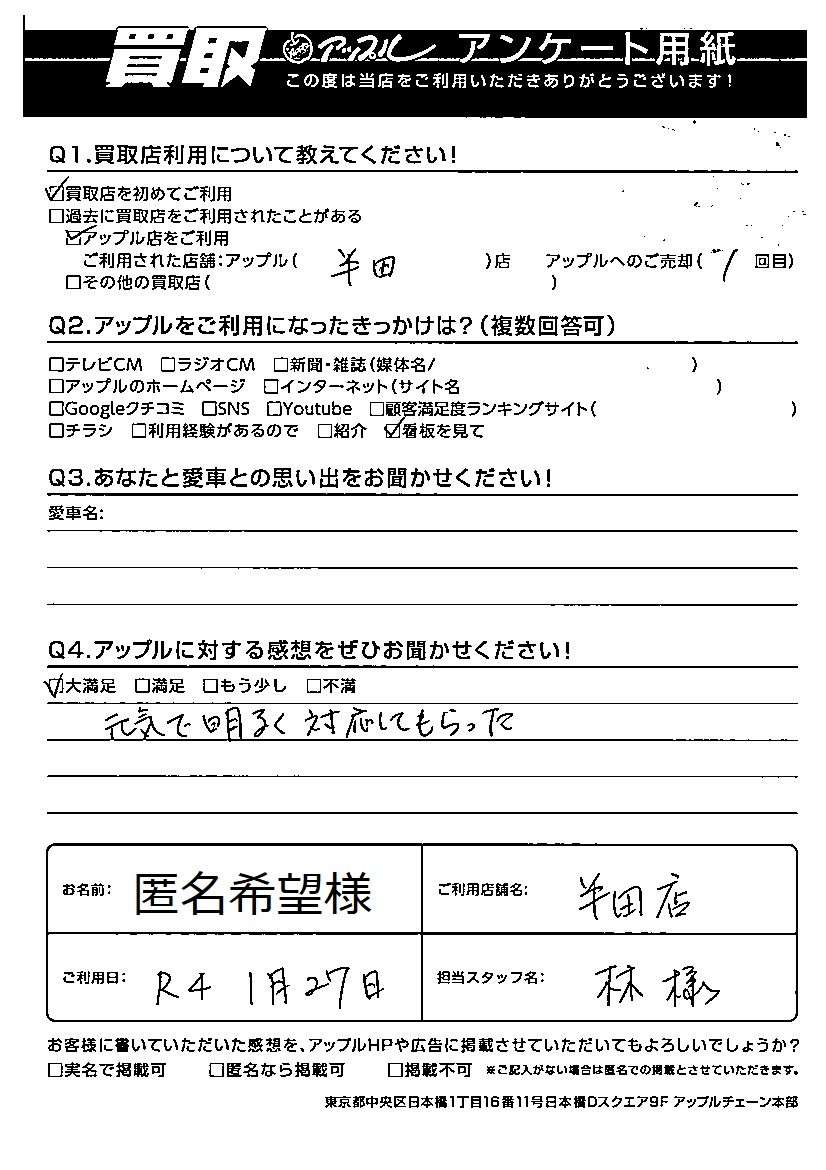 買取 アップル アンケート用紙
この度は当店をご利用いただきありがとうございます！
Q1.買取店利用について教えてください！
☑買取店を初めてご利用
□過去に買取店をご利用されたことがある
☑アップル店をご利用
ご利用された店舗：アップル（ 半田 ）店 アップルへのご売却（ 1 回目）
□その他の買取店（ ）
Q2.アップルをご利用になったきっかけは？（複数回答可）
□テレビCM □ラジオCM □新聞・雑誌（媒体名/ ）
□アップルのホームページ □インターネット（サイト名 ）
□Googleクチコミ □SNS □Youtube □顧客満足度ランキングサイト（ ）
□チラシ □利用経験があるので □紹介 ☑看板を見て
Q3.あなたと愛車との思い出をお聞かせください！
愛車名：
Q4.アップルに対する感想をぜひお聞かせください！
☑大満足 □満足 □もう少し □不満
元気で明るく対応してもらった
お名前： 匿名希望様 ご利用店舗名： 半田店
ご利用日： R4 1月27日 担当スタッフ名： 林様
お客様に書いていただいた感想を、アップルHPや広告に掲載させていただいてもよろしいでしょうか？
□実名で掲載可 □匿名なら掲載可 □掲載不可 ※ご記入がない場合は匿名での掲載とさせていただきます。
東京都中央区日本橋1丁目16番11号日本橋Dスクエア9F アップルチェーン本部